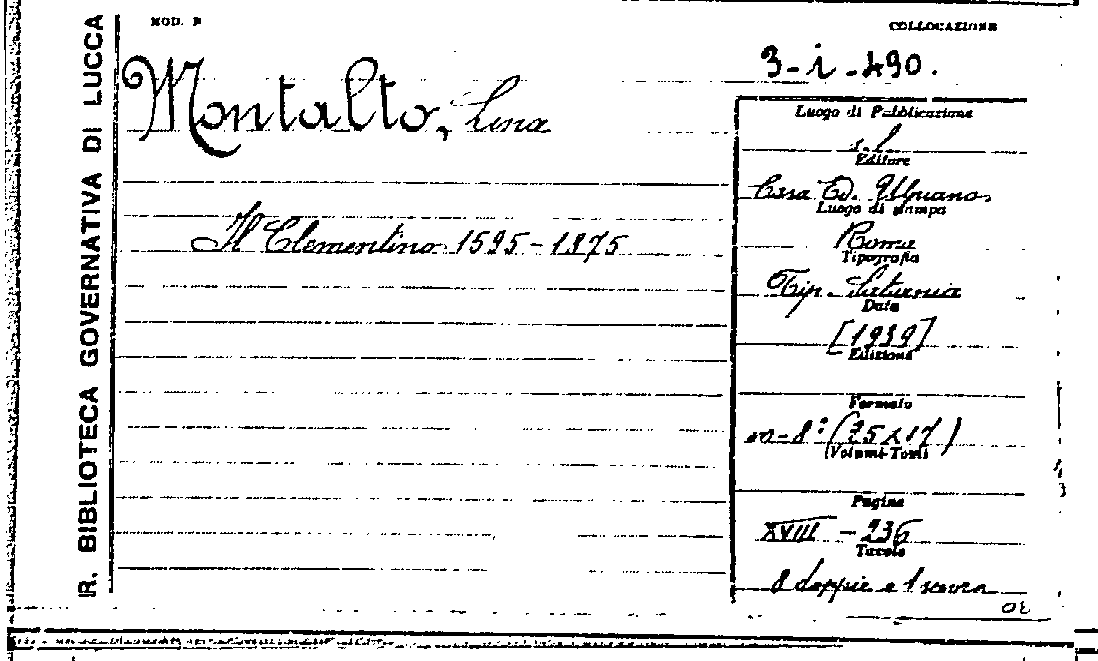 R. BIBLIOTECA GOVERNATIVA DI LUCCA
MOD. P
COLLOCAZIONE
3-i-490.
Montalto, Lina
Il Clementino 1595-1875
Luogo di Pubblicazione
s. l.
Editore
Casa Ed.
Luogo di stampa
Roma
Tipografia
Tip. Saturnia
Data
[1939]
Edizione
Formato
in-8° (25x17)
(Volumi-Tomi
Pagine
XVIII - 236
Tavole
8 doppie e 1